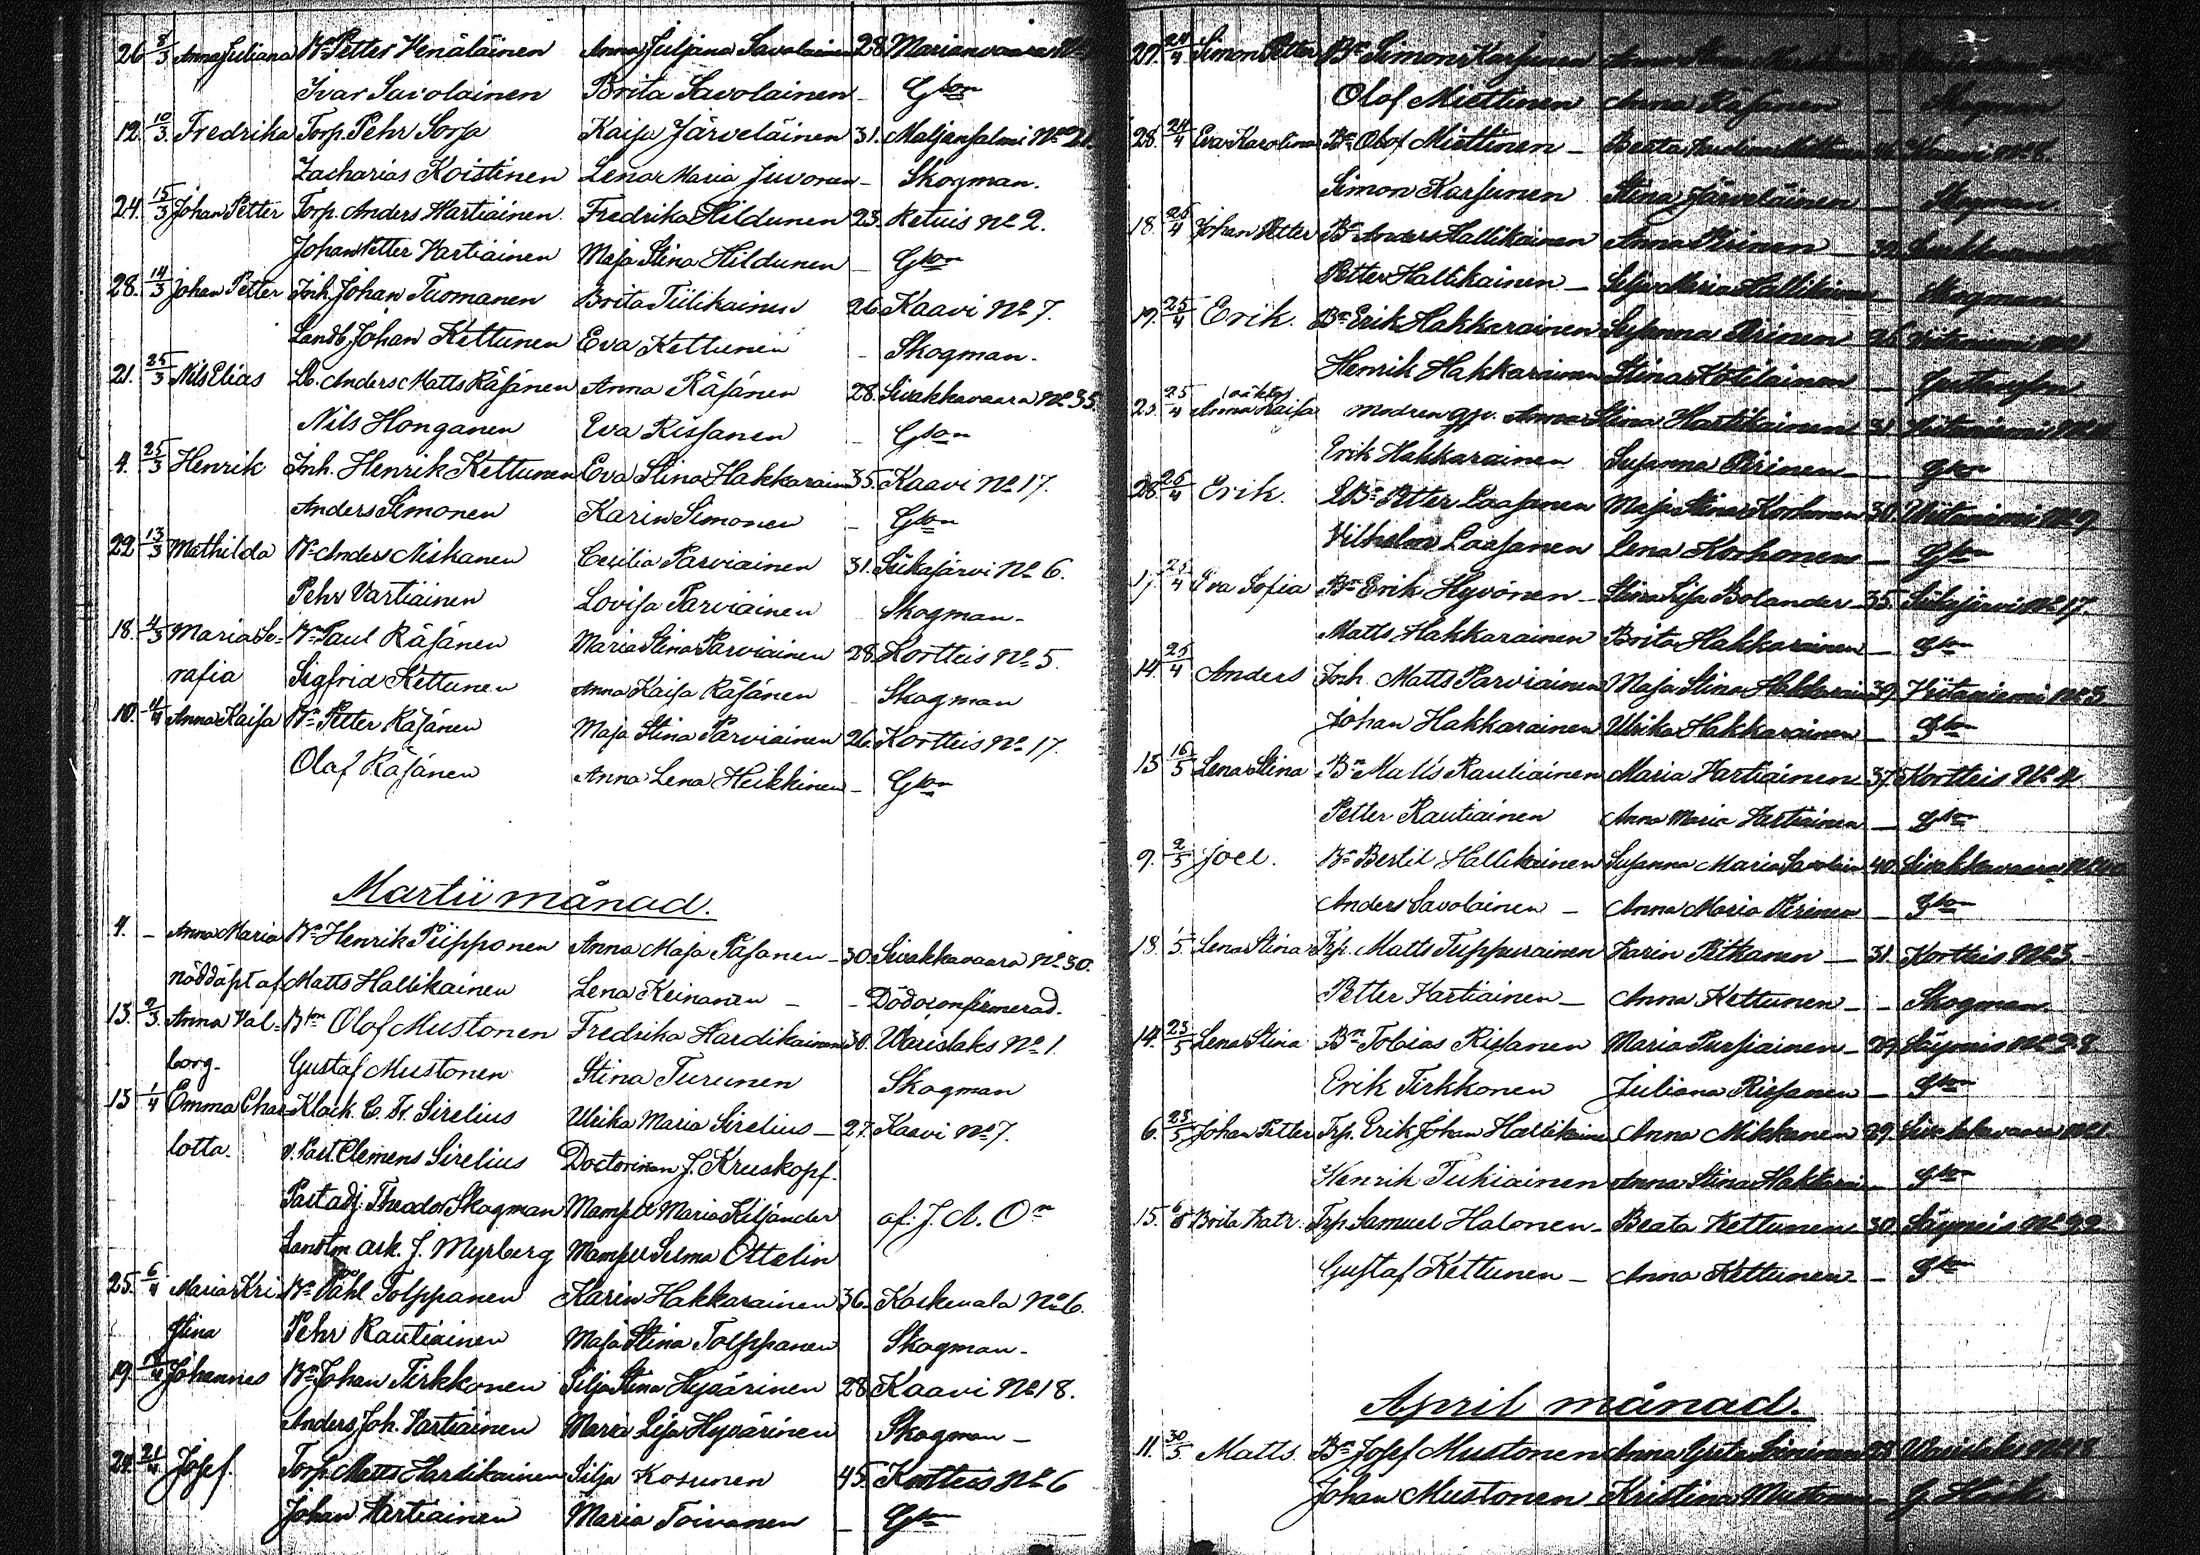 26 8/3 Anna Juliana Bn Petter Venäläinen Anna Juliana Savolainen 28. Marianvaara
Ivar Savolainen Brita Savolainen - Gson
12. 10/3. Fredrika Torp. Pehr Sorsa Kaisa Järveläinen 31. Maljansalmi No 21.
Zacharias Koistinen Lena Maria Juvonen - Skogman.
24. 15/3 Johan Petter Torp. Anders Vartiainen. Fredrika Hildunen 23. Retuis No 2.
Johan Petter Vartiainen Maja Stina Hildunen - Gson
28. 14/3 Johan Petter Inh. Johan Tuomanen Brita Tiilikainen 26. Kaavi No 7.
Landb. Johan Kettunen Eva Kettunen - Skogman.
21. 25/3 Nils Elias Lb. Anders Matts Räsänen Anna Räsänen 28. Sivakkavaara No 35.
Nils Honganen Eva Rissanen - Gson
4. 25/3 Henrik Inh. Henrik Kettunen Eva Stina Hakkarain 35. Kaavi No 17.
Anders Simonen Karin Simonen - Gson
22 13/3 Mathilda Bn Anders Niskanen Cecilia Parviainen 31. Siikajärvi No 6.
Pehr Vartiainen Lovisa Parviainen Skogman-
18. 4/3 Maria Se- Bn Paul Räsänen Maria Stina Parviainen 28. Kortteis No 5.
rafia Sigfrid Kettunen Anna Kaisa Räsänen Skogman
10. 4/4 Anna Kaisa Bn Petter Räsänen Maja Stina Parviainen 26. Kortteis No 17.
Olof Räsänen Anna Lena Heikkinen - Gson
Martii månad.
4. - Anna Maria Bn Henrik Piipponen Anna Maja Räsänen - 30. Sivakkavaara No 30.
nöddöpt af Matts Hallikainen Lena Keinänen - - Död o confirmerad.
13. 2/3. Anna Val- Bon Olof Mustonen Fredrika Hardikainen 30. Warislaks No 1.
borg- Gustaf Mustonen Stina Turunen Skogman
13 1/4 Emma Char- Klock. C. Fr. Sirelius Ulrika Maria Sirelius - 27. Kaavi No 7.
lotta. v. Past. Clemens Sirelius Doctorinan J. Kruskopf.
Past. adj. Theodor Skogman Mamsell Maria Kiljander af: J. A. On
Landtm. ask. J. Myrberg Mamsell Selma Ottelin
25. 6/4 Maria Kri- Bn Påhl Tolppanen Karin Hakkarainen 36. Koskenala No 6.
stina Pehr Rautiainen Maja Stina Tolppanen Skogman-
19. Johannes Bn Johan Tirkkonen Silja Stina Hyvärinen 28 Kaavi No 18.
Anders Joh. Vartiainen Maria Lisa Hyvärinen Skogman -
24. 21/4 Josef. Torp. Matts Hardikainen Silja Kosunen 45. Kortteis No 6
Johan Vertiainen Maria Toivanen - Gson
27. 24/4 Simon Petter Bn Simon Karsunen
Olof Miettinen Anna Räsänen - Skogman
28. 24/4 Eva Karolina Bn Olof Miettinen - Beata Kaavi No 8.
Simon Karsunen Stina Järveläinen - Skogman.
18. 25/4 Johan Petter Bn Anders Hallikainen Anna Pirinen
Petter Hallikainen - Silja Maria Hallikainen - Skogman
19. 25/4 Erik. Bn Erik Hakkarainen Susanna Pirinen 26. Viitaniemi
Henrik Hakkarainen Stina Kotilainen - Gustafson
25. 25/4 Anna Kaisa (oäkta) modren gp. Anna Stina Hartikainen 31. Viitaniemi
Erik Hakkarainen Susanna Pirinen - Gson
28. 26/4 Erik. Bn Petter Laasanen Maja Stina Korhonen 30. Viitaniemi No 9
Vilhelm Laasanen Lena Korhonen - Gson
17 25/4 Eva Sofia Bn Erik Hyvönen - Stina Lisa Bolander - 35. Siikajärvi No 17.
Matts Hakkarainen Brita Hakkarainen - Gson
14. 25/4 Anders Inh. Matts Parviainen Maja Stina Hakkarain 39. Viitaniemi No 3
Johan Hakkarainen Ulrika Hakkarainen - Gson
15 16/5 Lena Stina Bn Matts Rautiainen Maria Vartiainen 37. Kortteis No 4.
Petter Rautiainen Anna Maria Vertiainen - Gson
9. 2/5 Joel. Bn Bertil Hallikainen Susanna Maria Savolain 40. Sivakkavaara
Anders Savolainen - Anna Maria Pirinen - Gson
18. 1/5 Lena Stina Trp. Matts Tuppurainen Karin Pitkänen - 31. Kortteis No 3.
Petter Vartiainen - Anna Kettunen - - Skogman.
14. 23/5 Lena Stina Bn Tobias Risanen Maria Pursiainen - 29. Säyneis No 28
Erik Tirkkonen Juliana Rissanen - Gson
6. 23/5 Johan Petter Trp. Erik Johan Hallikaine Anna Mikkanen 29. Sivakkavaara
Henrik Tukiainen Anna Stina Hakkarai - Gson
15. 6/8 Brita Katr. Trp. Samuel Halonen - Beata Kettunen 30. Säyneis No 22.
Gustaf Kettunen - Anna Kettunen - - Gson
April månad.
11. 30/5 Matts. Bn Josef Mustonen Anna Greta 28. Warislaks
Johan Mustonen Kristina Mustonen